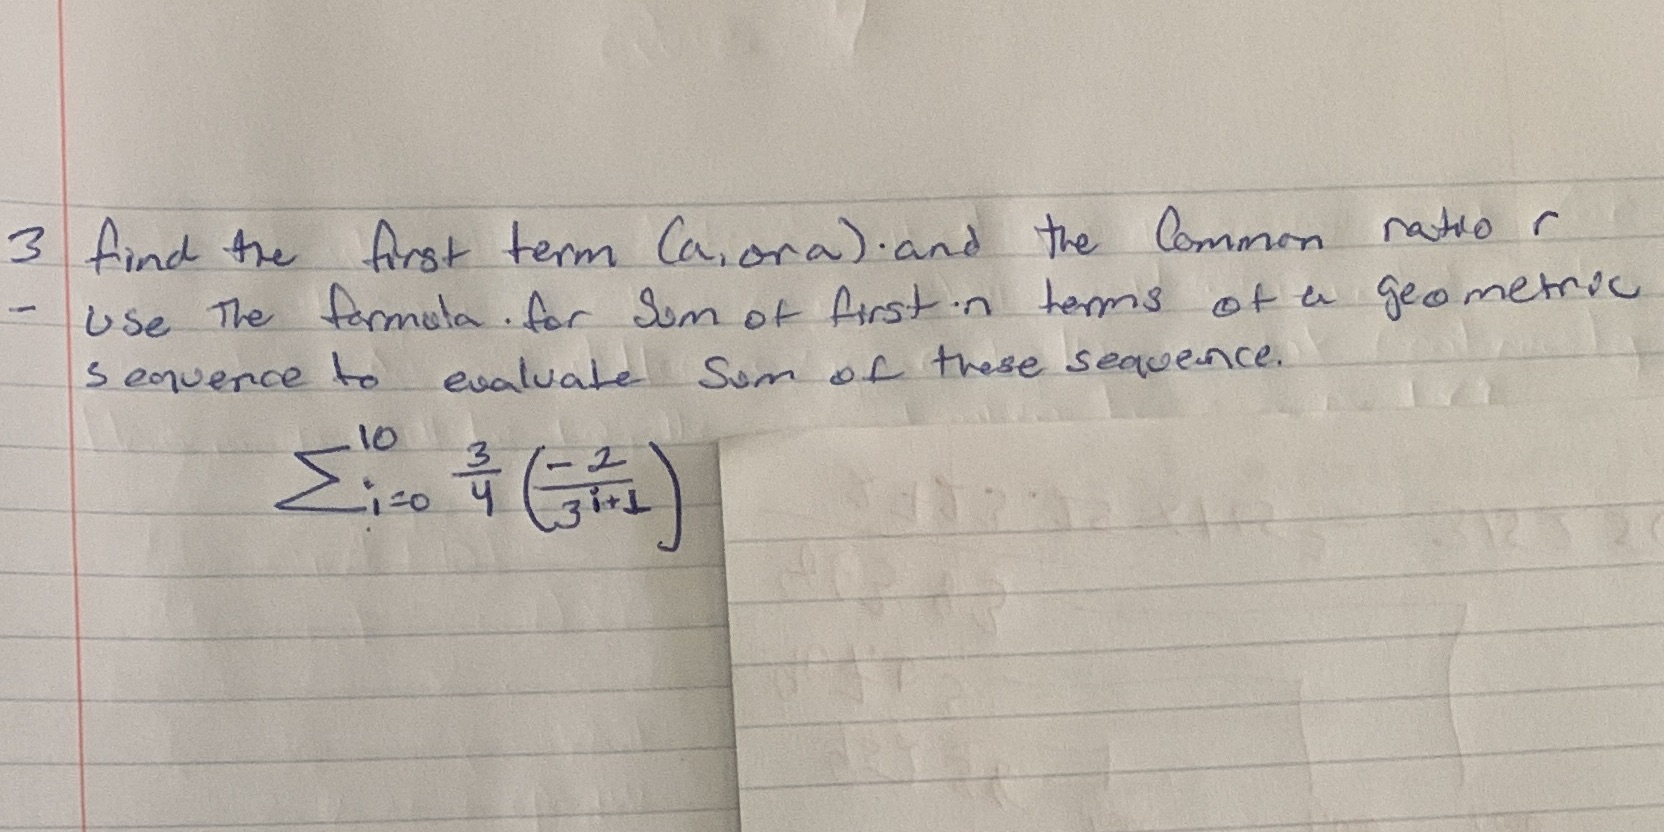 3 find the first term (a, or a). and the Common ratio r
- Use The formula. for Sum of first n terms of a geometric
sequence to evaluate Sum of these sequence.
∑ 10 i=0 3/4 (-2/3^{i+1})